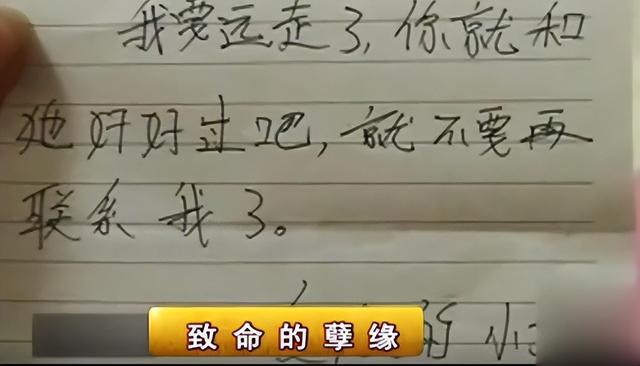 我要远走了,你就和
她好好过吧,就不要再
联系我了。
的小
致命的孽缘